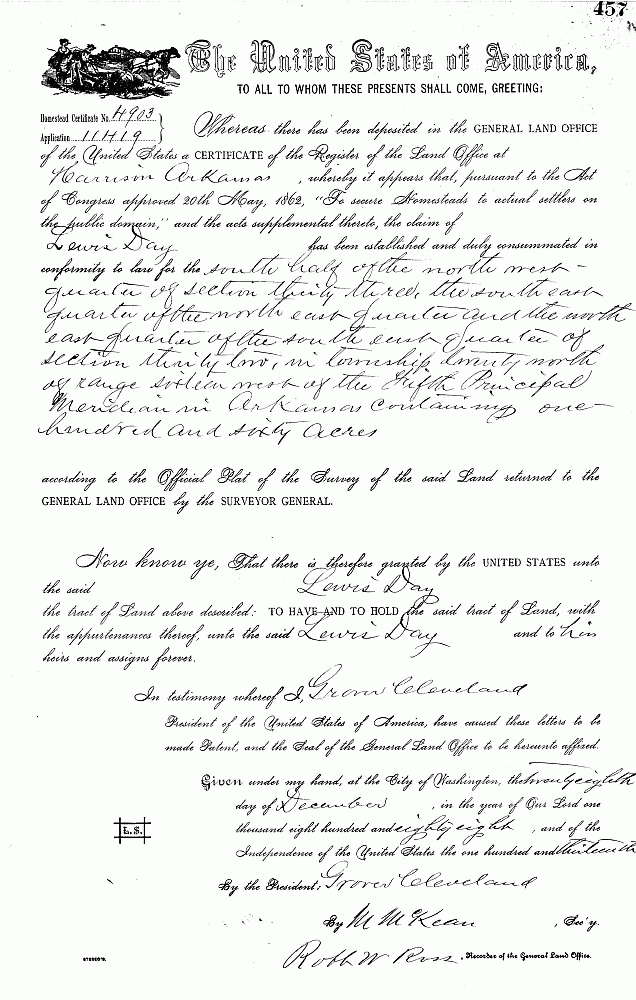 457
The United States of America,
TO ALL TO WHOM THESE PRESENTS SHALL COME, GREETING:
Homestead Certificate No. 4903
Application 11419
Whereas there has been deposited in the GENERAL LAND OFFICE
of the United States a CERTIFICATE of the Register of the Land Office at
Harrison Arkansas, whereby it appears that, pursuant to the Act
of Congress approved 20th May, 1862, "To secure Homesteads to actual settlers on
the public domain," and the acts supplemental thereto, the claim of
Lewis Day has been established and duly consummated in
conformity to law for the south half of the north west
quarter of section thirty three, the south east
quarter of the north east quarter and the north
east quarter of the south east quarter of
section thirty two, in township twenty north
of range sixteen west of the Fifth Principal
Meridian in Arkansas containing one
hundred and sixty acres
according to the Official Plat of the Survey of the said Land returned to the
GENERAL LAND OFFICE by the SURVEYOR GENERAL.
Now know ye, That there is therefore granted by the UNITED STATES unto
the said Lewis Day
the tract of Land above described: TO HAVE AND TO HOLD the said tract of Land, with
the appurtenances thereof, unto the said Lewis Day and to his
heirs and assigns forever.
In testimony whereof I, Grover Cleveland
President of the United States of America, have caused these letters to be
made Patent, and the Seal of the General Land Office to be hereunto affixed.
Given under my hand, at the City of Washington, the twenty eighth
day of December, in the year of Our Lord one
thousand eight hundred and eighty eight, and of the
Independence of the United States the one hundred and thirteenth
L.S.
By the President: Grover Cleveland
By M McKean, Sec'y.
Robt W Ross, Recorder of the General Land Office.